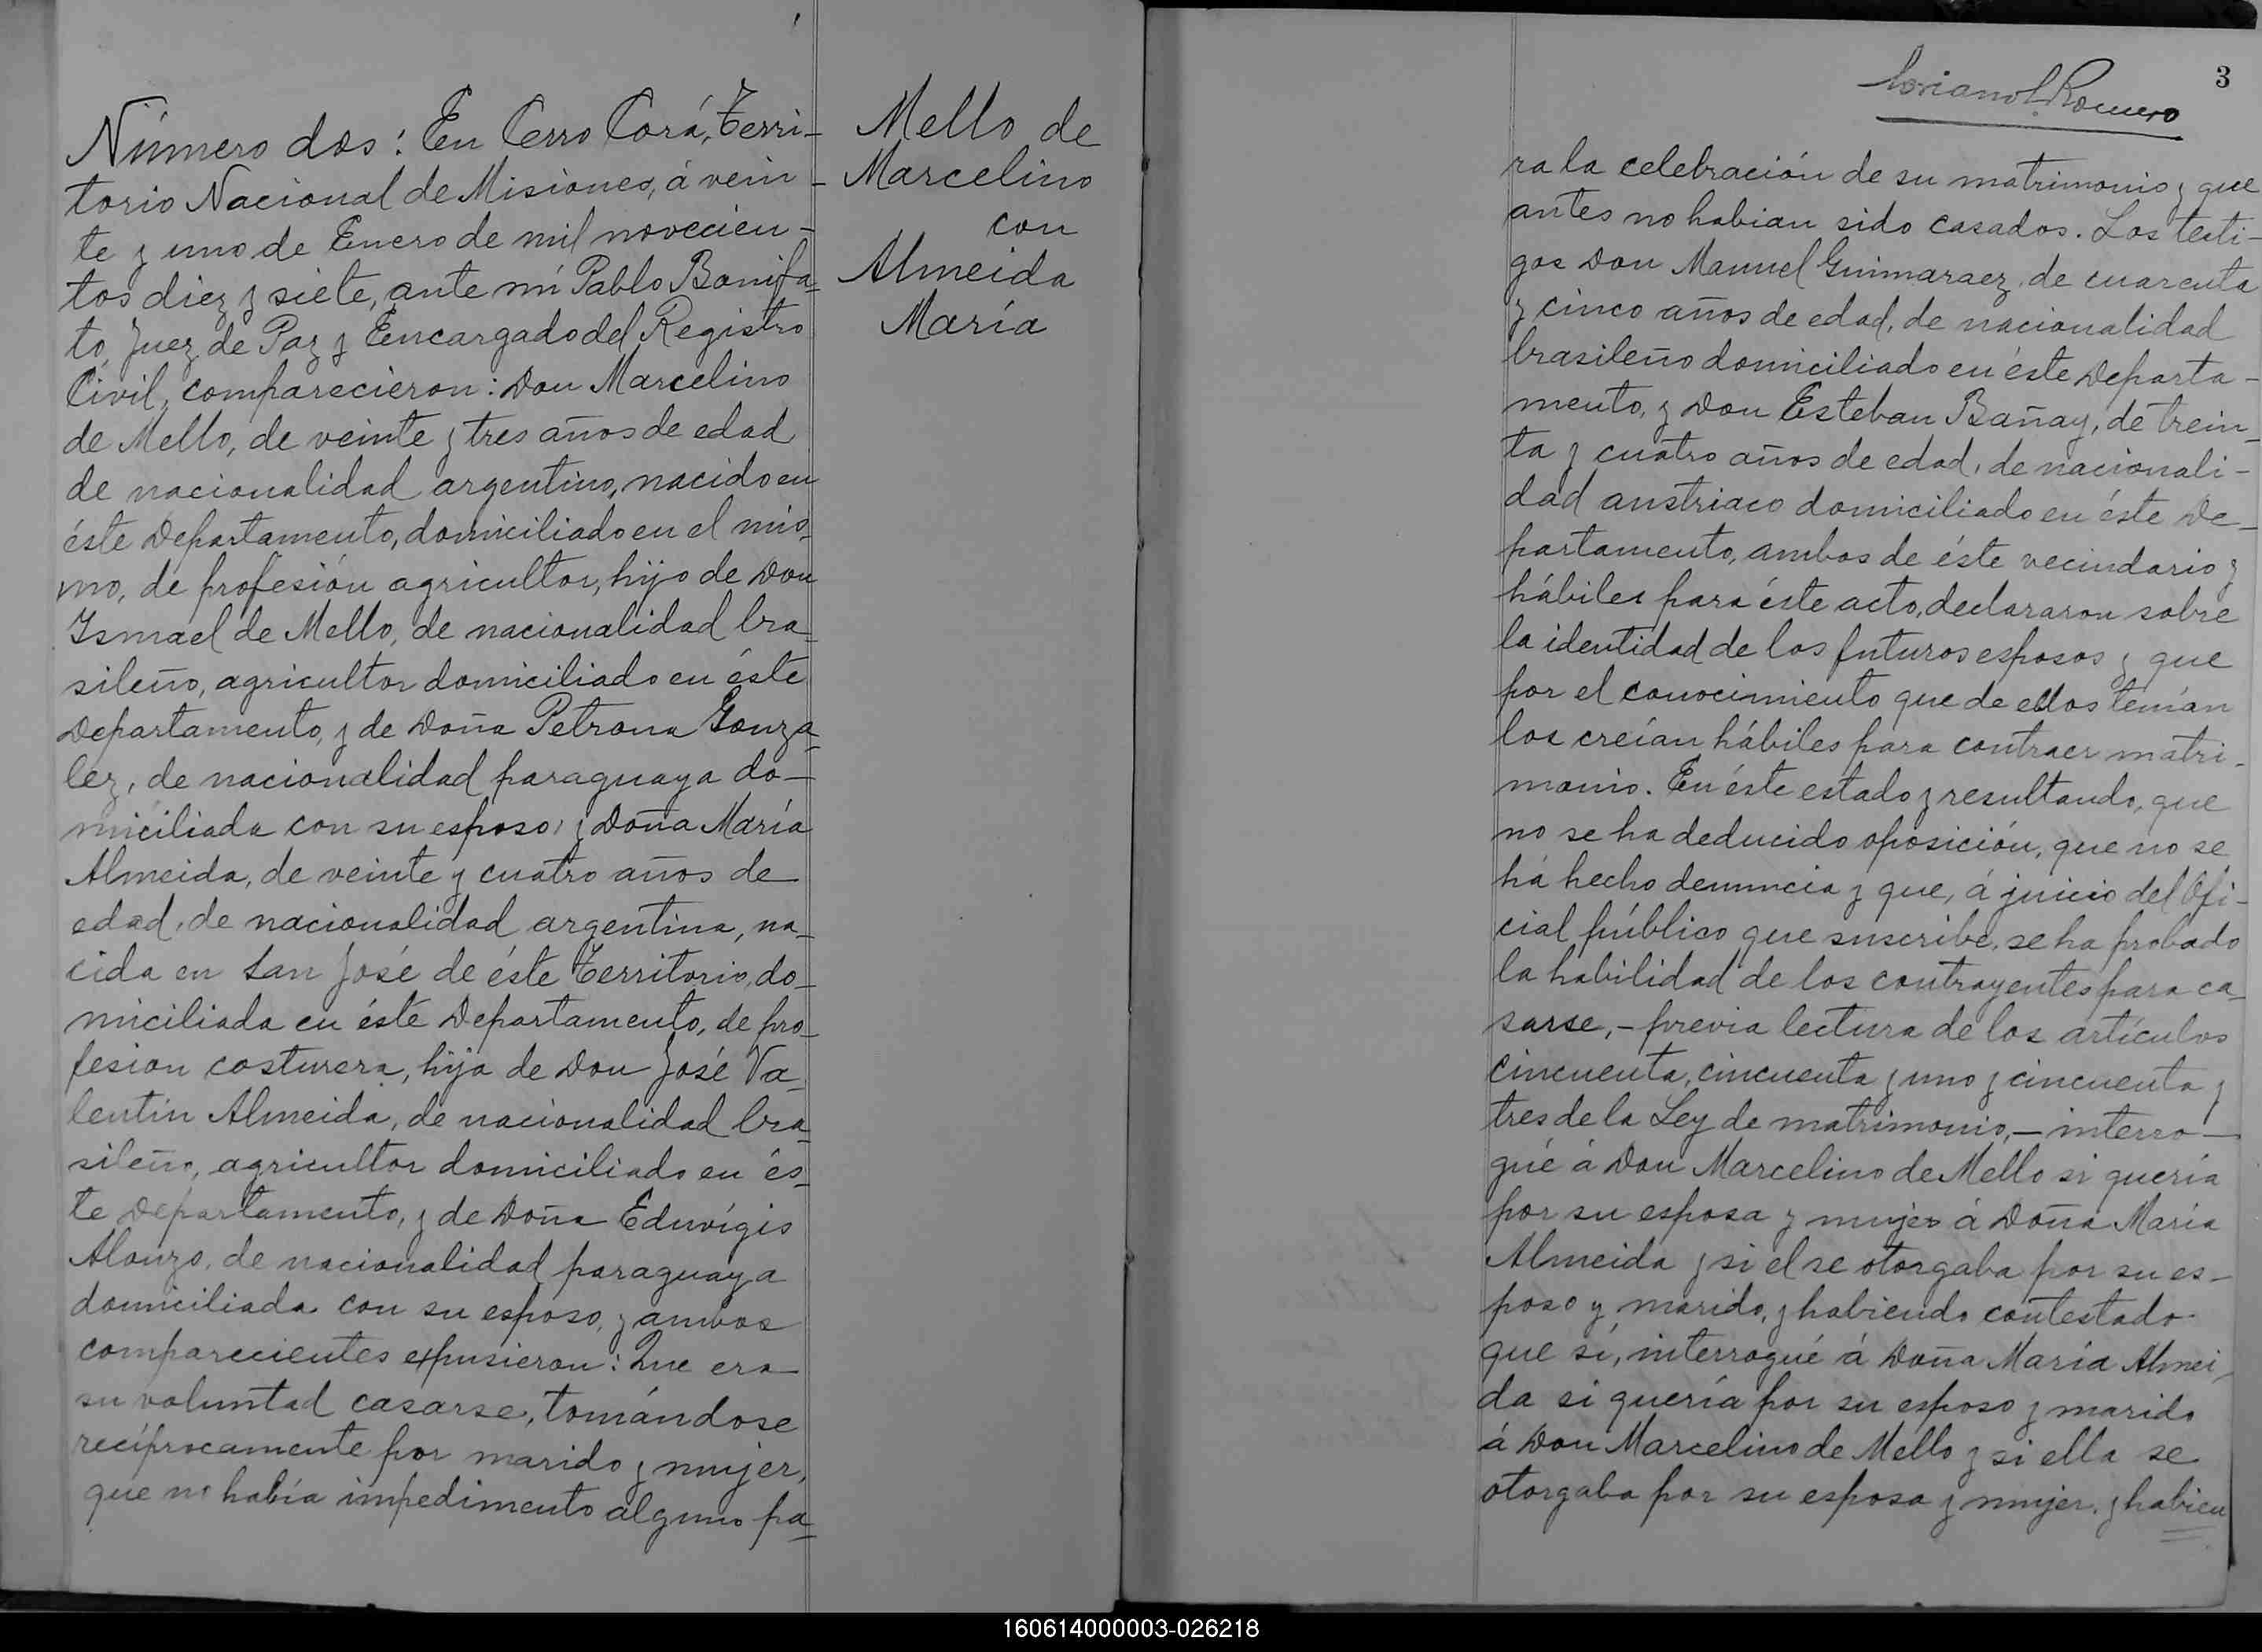 Número dos: En Cerro Corá, Terri-
torio Nacional de Misiones, á vein-
te y uno de Enero de mil novecien-
tos diez y siete, ante mí Pablo Bonifa-
to, Juez de Paz y Encargado del Registro
Civil, comparecieron: Don Marcelino
de Mello, de veinte y tres años de edad
de nacionalidad argentino, nacido en
éste Departamento, domiciliado en el mis-
mo, de profesión agricultor, hijo de Don
Ismael de Mello, de nacionalidad bra-
sileño, agricultor domiciliado en éste
Departamento, y de Doña Petrona Gonza-
lez, de nacionalidad paraguaya do-
miciliada con su esposo, y Doña María
Almeida, de veinte y cuatro años de
edad, de nacionalidad argentina, na-
cida en San José de éste Territorio, do-
miciliada en éste Departamento, de pro-
fesion costurera, hija de Don José Va-
lentín Almeida, de nacionalidad bra-
sileño, agricultor domiciliado en és-
te Departamento, y de Doña Eduvígis
Alonzo, de nacionalidad paraguaya
domiciliada con su esposo, y ambos
comparecientes expusieron: Que era
su voluntad casarse, tomándose
recíprocamente por marido y mujer,
que no había impedimento alguno pa-
Mello de
Marcelino
con
Almeida
María
Romero
3
ra la celebración de su matrimonio y que
antes no habian sido casados. Los testi-
gos Don Manuel Guimaraez, de cuarenta
y cinco años de edad, de nacionalidad
brasileño domiciliado en éste Departa-
mento, y Don Esteban Bañay, de trein-
ta y cuatro años de edad, de nacionali-
dad austriaco domiciliado en éste De-
partamento, ambos de éste vecindario y
hábiles para éste acto, declararon sobre
la identidad de los futuros esposos y que
por el conocimiento que de ellos tenían
los creían hábiles para contraer matri-
monio. En éste estado y resultando, que
no se ha deducido oposición, que no se
há hecho denuncia y que, á juicio del Ofi-
cial público que suscribe, se ha probado
la habilidad de los contrayentes para ca-
sarse,- previa lectura de los artículos
cincuenta, cincuenta y uno y cincuenta y
tres de la Ley de matrimonio,- interro-
gué á Don Marcelino de Mello si quería
por su esposa y mujer á Doña María
Almeida y si el se otorgaba por su es-
poso y marido, y habiendo contestado
que sí, interrogué á Doña María Almei-
da si quería por su esposo y marido
á Don Marcelino de Mello y si ella se
otorgaba por su esposa y mujer, y habien
160614000003-026218